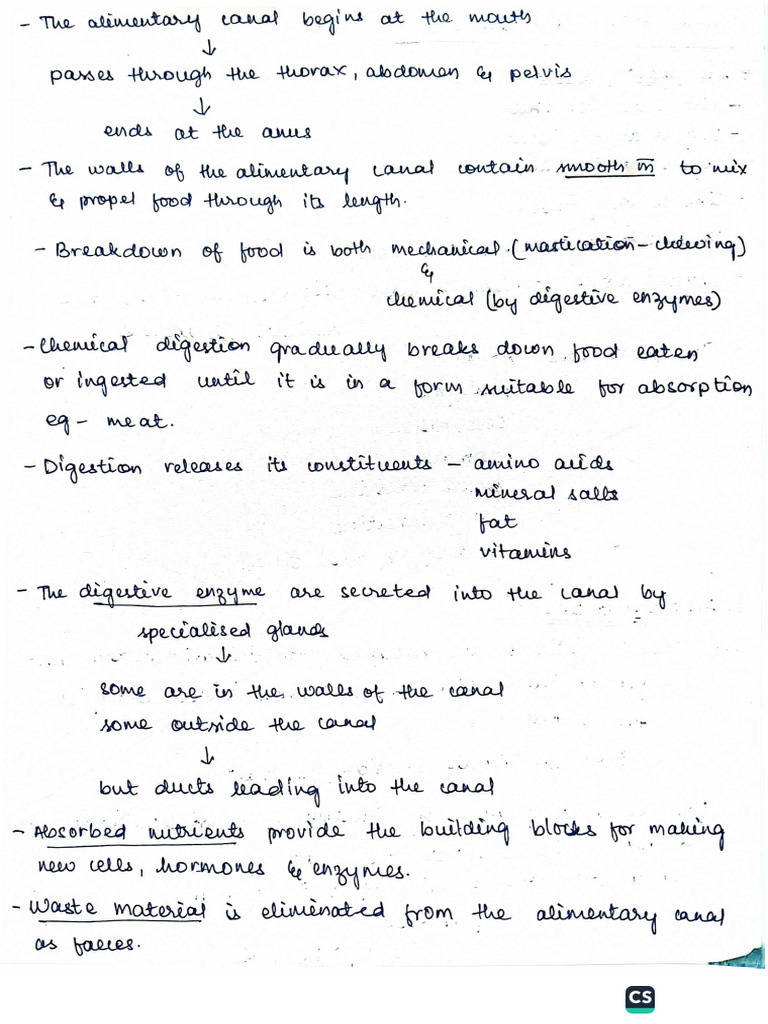 - The alimentary canal begins at the mouth
↓
passes through the thorax, abdomen & pelvis
↓
ends at the anus
- The walls of the alimentary canal contain smooth m̅ to mix
& propel food through its length.
- Breakdown of food is both mechanical (mastication - chewing)
&
chemical (by digestive enzymes)
- Chemical digestion gradually breaks down food eaten
or ingested until it is in a form suitable for absorption
eg - meat.
- Digestion releases its constituents - amino acids
mineral salts
fat
vitamins
- The digestive enzyme are secreted into the canal by
specialised glands
↓
some are in the walls of the canal
some outside the canal
↓
but ducts leading into the canal
- Absorbed nutrients provide the building blocks for making
new cells, hormones & enzymes.
- Waste material is eliminated from the alimentary canal
as faeces.
CS